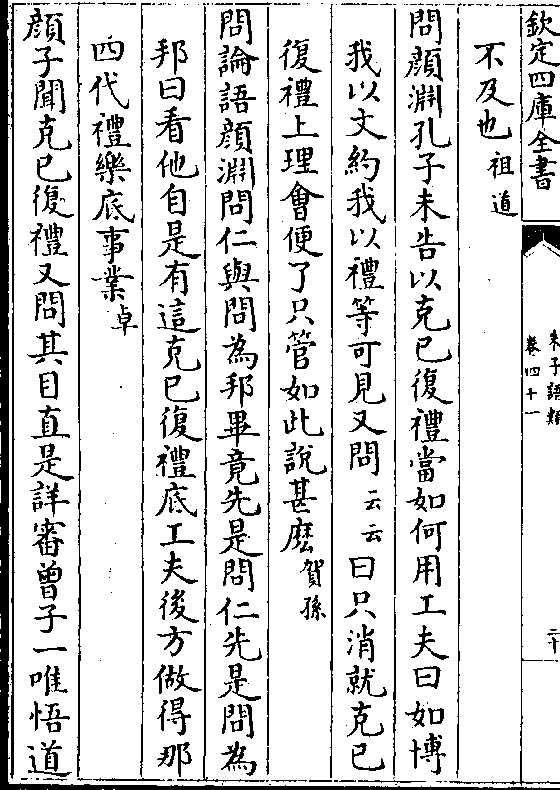 欽定四庫全書
朱子語類
卷四十一
二十
不及也祖道
問顔淵孔子未告以克已復禮當如何用工夫曰如博
我以文約我以禮等可見又問云云曰只消就克已
復禮上理會便了只管如此說甚麽賀孫
問論語顔淵問仁與問為邦畢竟先是問仁先是問為
邦曰看他自是有這克已復禮底工夫後方做得那
四代禮樂底事業卓
顔子聞克已復禮又問其目直是詳審曾子一唯悟道